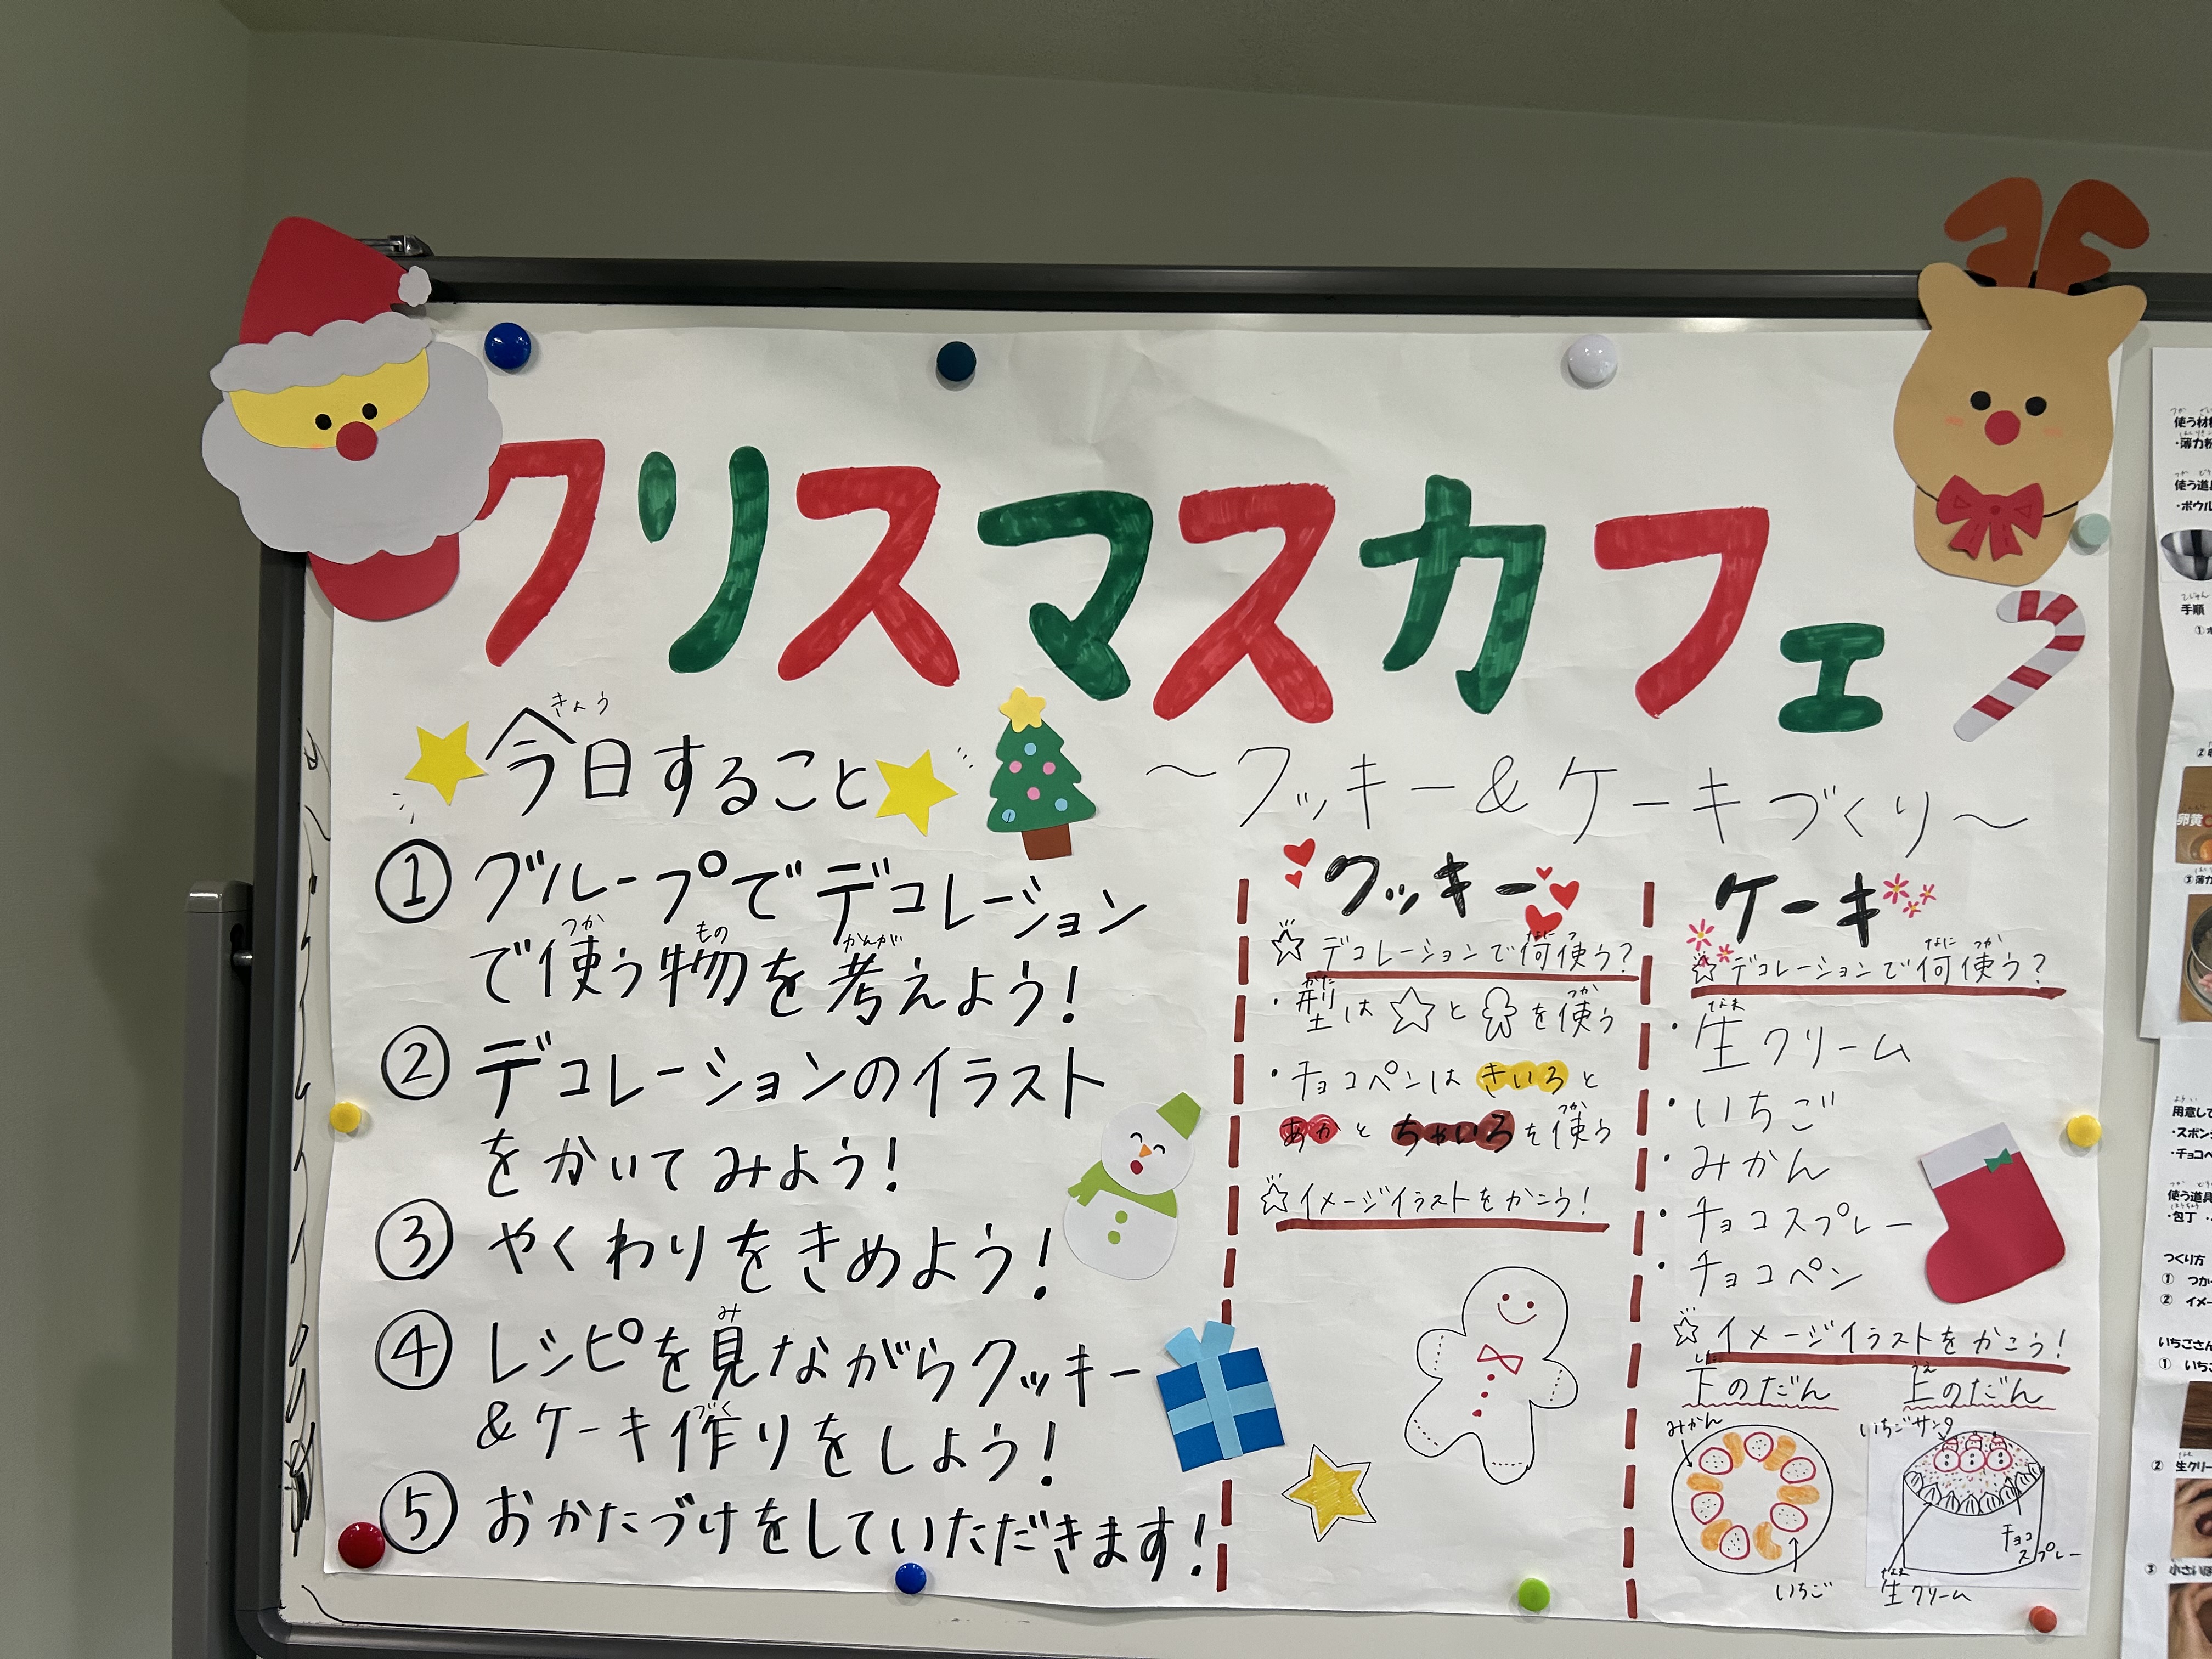 クリスマスカフェ
～クッキー&ケーキづくり～
きょう
今日すること
①グループでデコレーション
つか もの かんが
で使う物を考えよう!
②デコレーションのイラスト
をかいてみよう!
③やくわりをきめよう!
み
④レシピを見ながらクッキー
づく
&ケーキ作りをしよう!
⑤おかたづけをしていただきます!
クッキー
☆デコレーションで何使う?
かた つか
・型は☆と を使う
・チョコペンはきいろと
つか
あかとちゃいろを使う
☆イメージイラストをかこう!
ケーキ
なに つか
☆デコレーションで何使う?
なま
・生クリーム
・いちご
・みかん
・チョコスプレー
・チョコペン
☆イメージイラストをかこう!
した
下のだん
みかん
いちご
うえ
上のだん
いちごサンタ
チョコ
スプレー
なま
生クリーム
つか
使う材
・薄力粉
つか
使う道具
・ボウル
てじゅん
手順
①
②
卵黄
③薄力
用意して
・スポン
・チョコペ
使う道具
・包丁
つくり方
① つか
② イメー
いちごさん
① いち
② 生クリー
③ 小さい